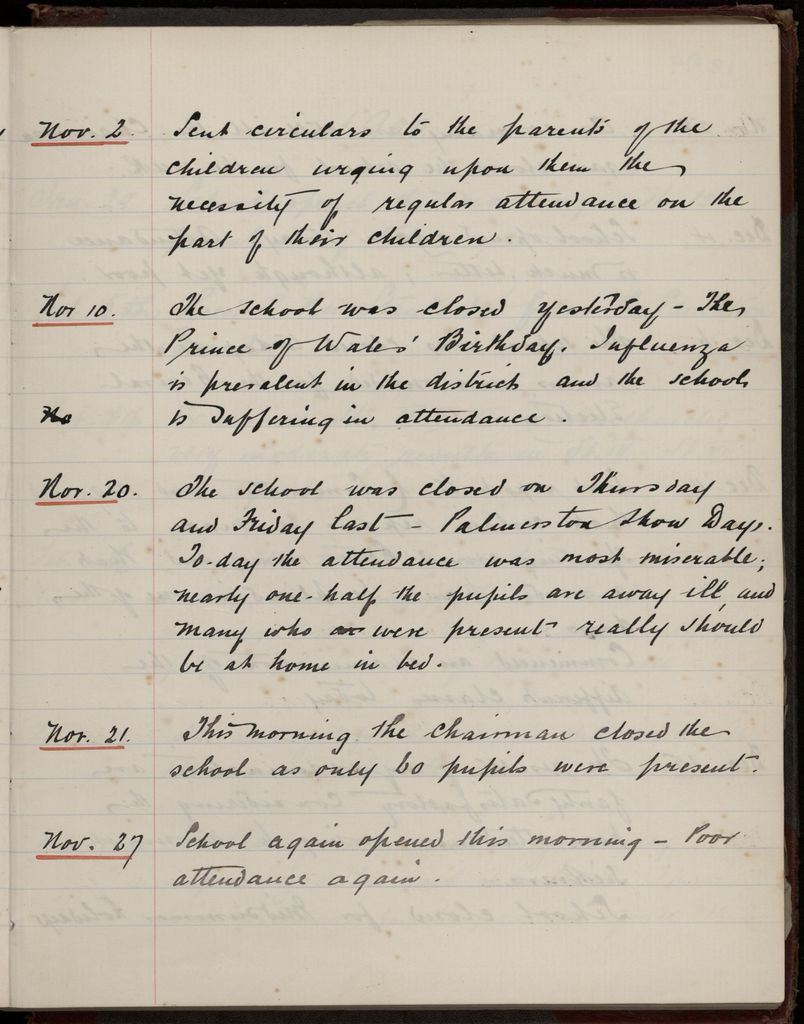 Nov. 2. Sent circulars to the parents of the
children urging upon them the
necessity of regular attendance on the
part of their children.
Nov 10. The school was closed yesterday - The
Prince of Wales' Birthday. Influenza
is prevalent in the district and the school
is suffering in attendance.
Nov. 20. The school was closed on Thursday
and Friday last - Palmerston Show Days.
To-day the attendance was most miserable;
nearly one-half the pupils are away ill, and
many who were present really should
be at home in bed.
Nov. 21. This morning the chairman closed the
school as only 60 pupils were present.
Nov. 27 School again opened this morning - Poor
attendance again.